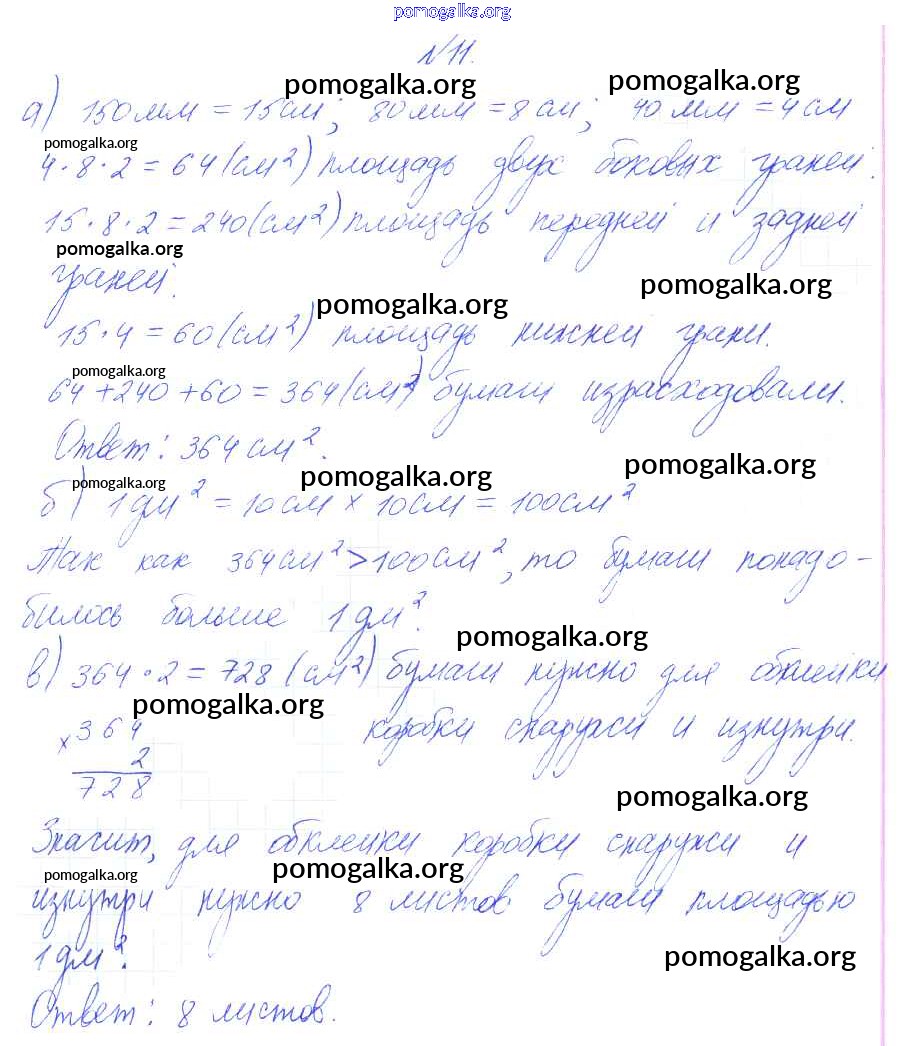 pomogalka.org
№11.
pomogalka.org pomogalka.org
а) 150 мм = 15 см; 80 мм = 8 см; 40 мм = 4 см
pomogalka.org
4·8·2 = 64 (см²) площадь двух боковых граней.
15·8·2 = 240 (см²) площадь передней и задней
pomogalka.org
граней.
pomogalka.org pomogalka.org
15·4 = 60 (см²) площадь нижней грани.
pomogalka.org
64 + 240 + 60 = 364 (см²) бумаги израсходовали.
Ответ: 364 см².
pomogalka.org pomogalka.org
pomogalka.org
б) 1 дм² = 10 см × 10 см = 100 см²
Так как 364 см² > 100 см², то бумаги понадо-
билось больше 1 дм².
pomogalka.org
в) 364·2 = 728 (см²) бумаги нужно для обклейки
pomogalka.org
×364 коробки снаружи и изнутри.
2
728
pomogalka.org
Значит, для обклейки коробки снаружи и
pomogalka.org pomogalka.org
изнутри нужно 8 листов бумаги площадью
1 дм².
pomogalka.org
Ответ: 8 листов.